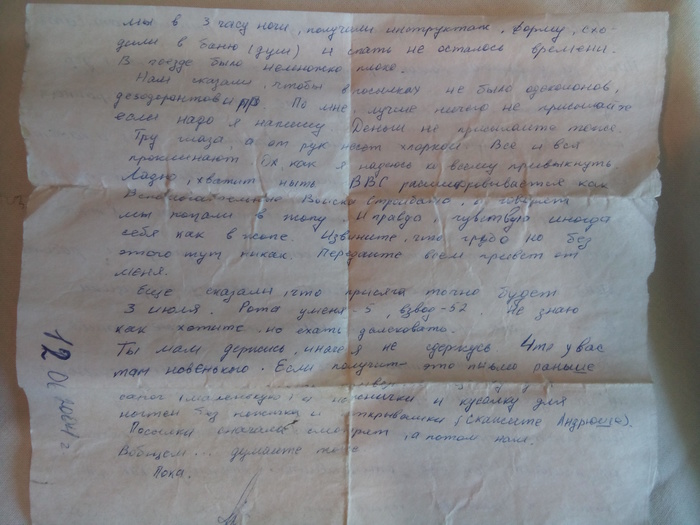 мы в 3 часу ночи, получили инструктаж, форму, схо-
дили в баню (душ) и спать не осталось времени.
В поезде было немножко плохо.
Нам сказали, чтобы в посылках не было одеколонов,
дезодорантов и пр. По мне, лучше ничего не присылайте
если надо я напишу. Деньги не присылайте тоже.
Тру глаза, а от рук несёт хлоркой. Все и вся
проклинают. Ох как я надеюсь ко всему привыкнуть.
Ладно, хватит ныть. ВВС расшифровывается как
Войска Стройбата, и говорят
мы попали в жопу. И правда чувствую иногда
себя как в жопе. Извините, что грубо но без
этого тут никак. Передайте всем привет от
меня.
Еще сказали, что присяга точно будет
3 июля. Рота у меня - 5, взвод - 52. Не знаю
как хотите, но ехать далековато.
Ты мам держись, иначе я не сдержусь. Что у вас
там новенького. Если получите это письмо раньше
сапог (маленькую) и ножнички и кусачку для
ногтей без пилочки и открывашки (Скажите Андрюше).
Посылки сначала смотрят, а потом нам.
Вобщем... думайте
Пока.
12 06 2004 г